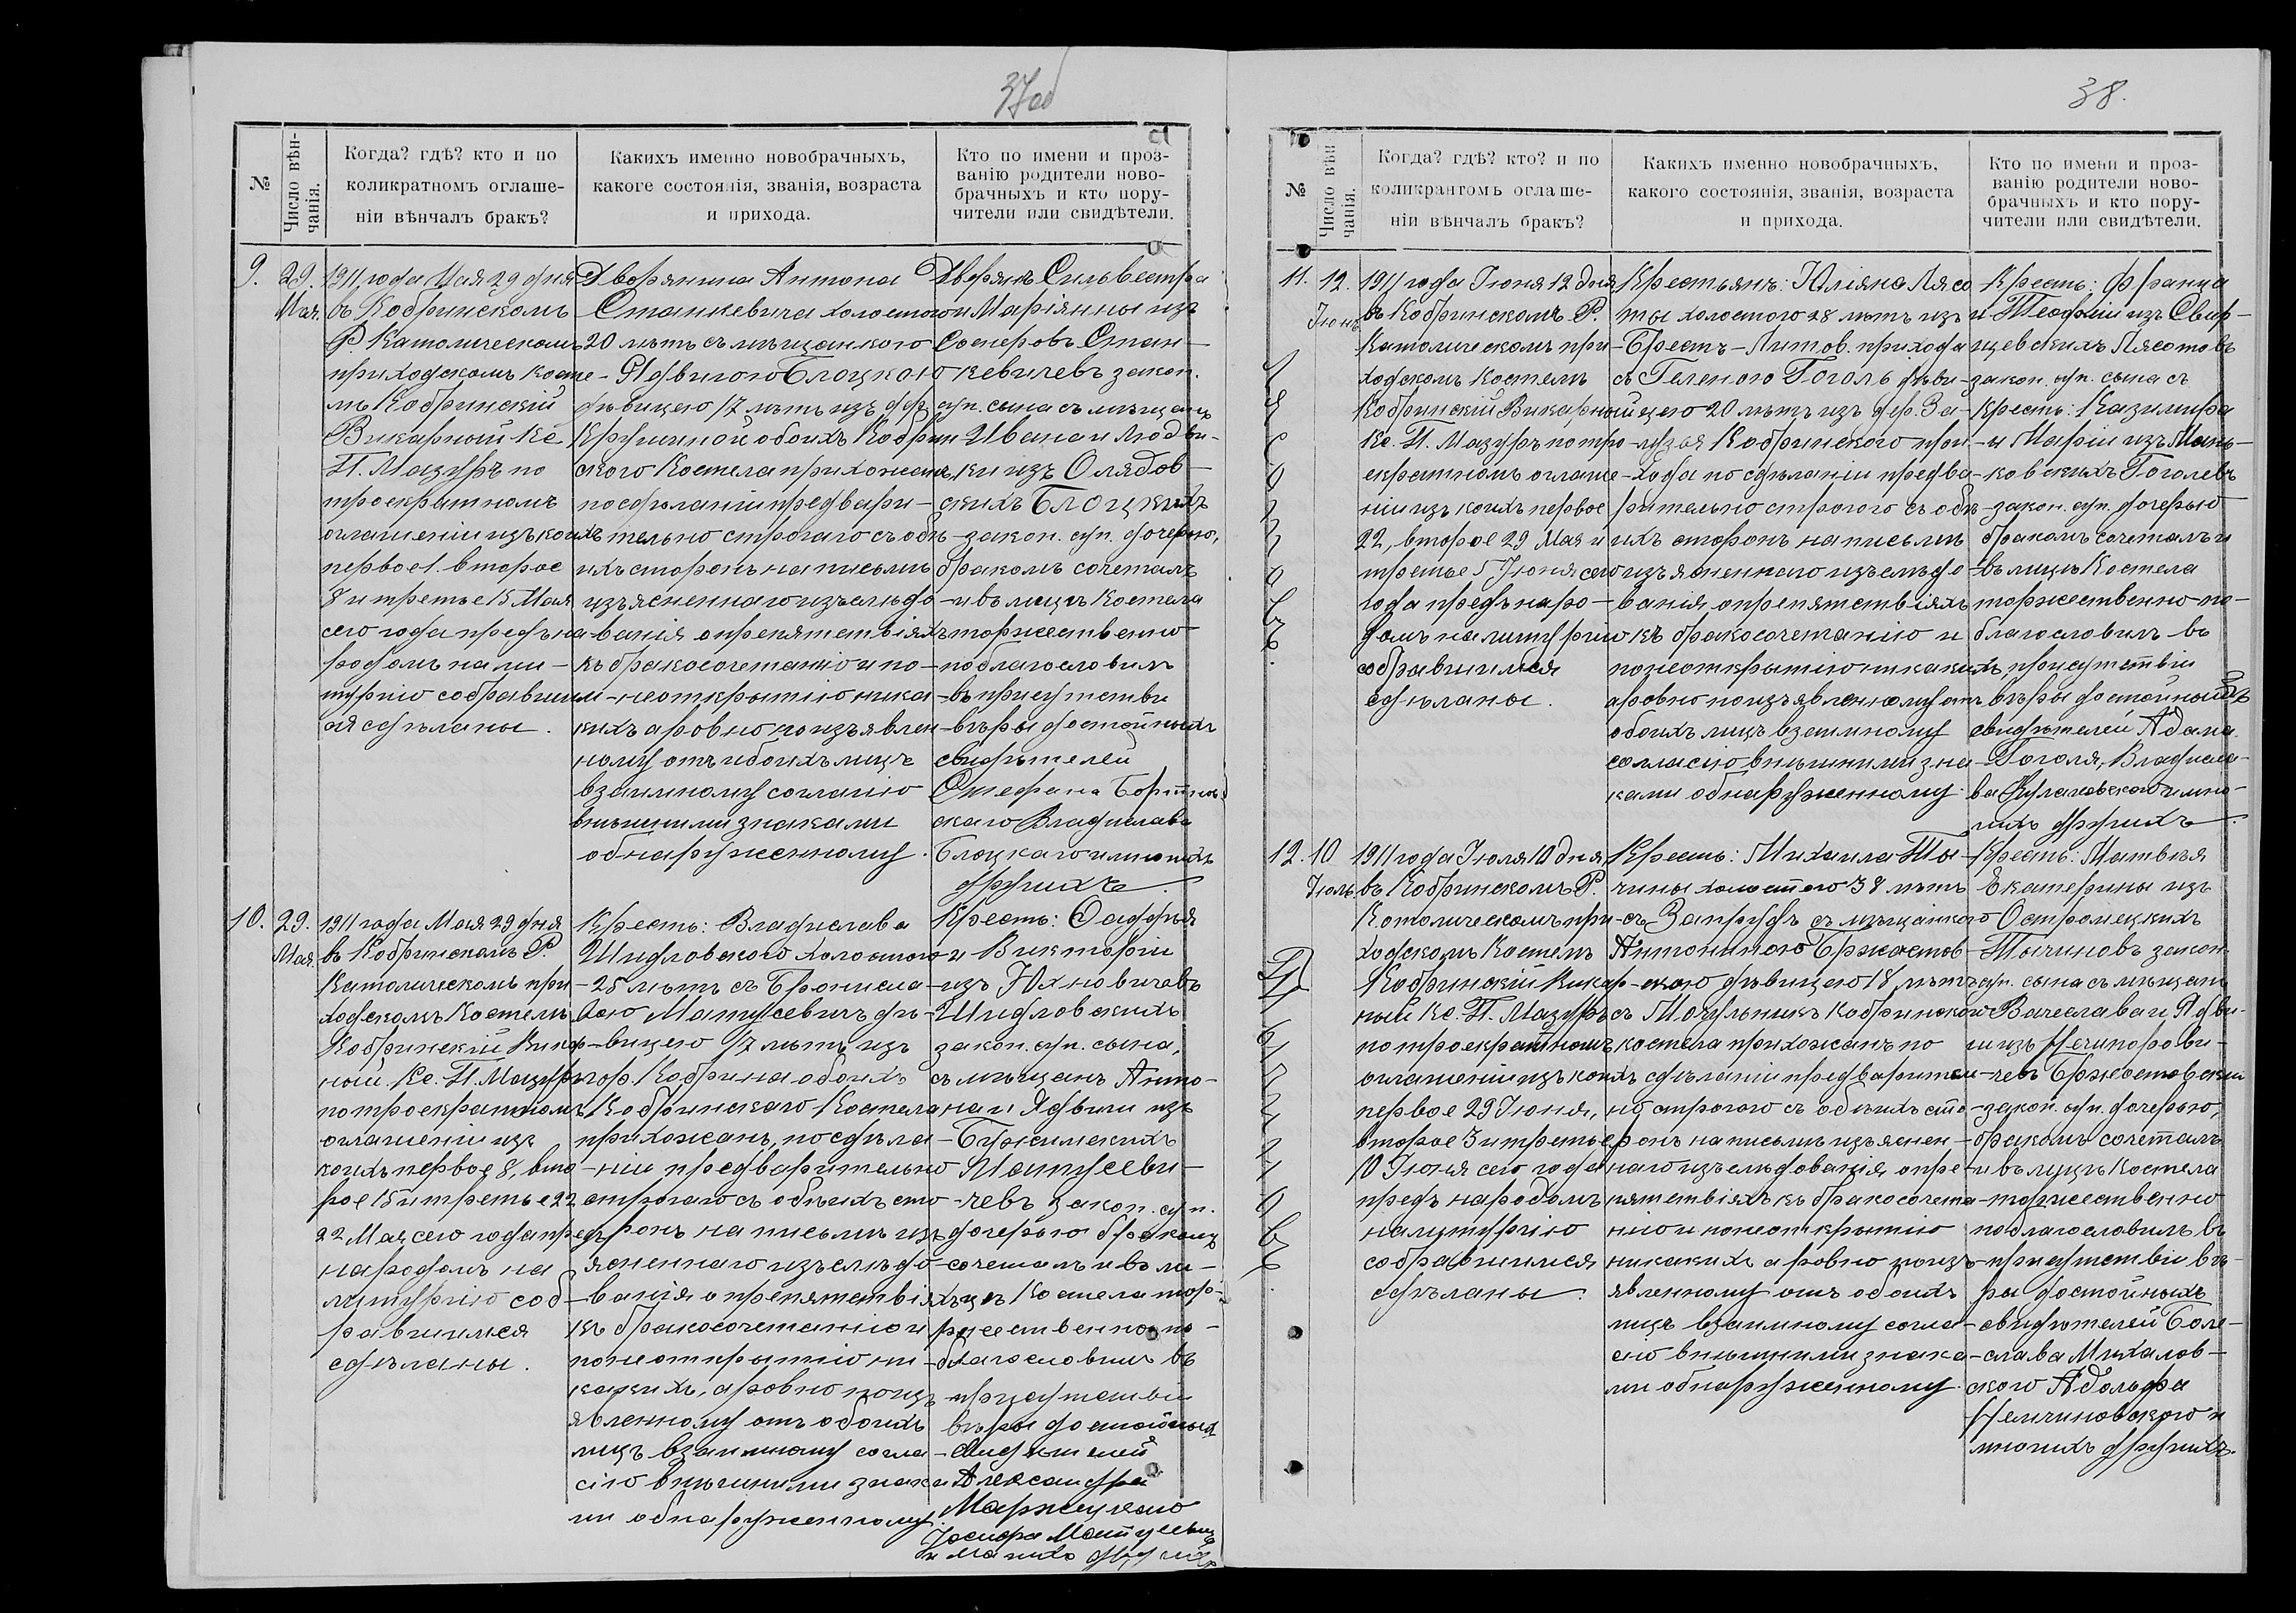 37об
№
Число вѣн-
чанія.
Когда? гдѣ? кто и по
коликратномъ оглаше-
ніи вѣнчалъ бракъ?
Какихъ именно новобрачныхъ,
какоге состоянія, званія, возраста
и прихода.
Кто по имени и проз-
ванію родители ново-
брачныхъ и кто пору-
чители или свидѣтели.
9.
29.
Мая.
1911 года Мая 29 дня
въ Кобринскомъ
Р. Католическомъ
приходскомъ косте-
лѣ Кобринскій
Викарный Кс.
П. Мазуръ по
троекратномъ
оглашеніи изъ коихъ
первое 1. второе
8 и третье 15 Мая
сего года предъ на
родомъ на ли-
тургію собравшим-
ся сдѣланы.
Дворянина Антона
Станкевича холостого
20 лѣтъ съ мѣщанкою
Ядвигою Блоцкою
дѣвицею 17 лѣтъ изъ дер.
Кругличной обоихъ Кобрин
скаго Костела прихожанъ,
по сдѣланіи предвари-
тельно строгаго съ обѣ-
ихъ сторонъ на письмѣ
изъясненнаго изслѣдо-
ванія о препятствіяхъ
къ бракосочетанію и по
неоткрытію ника
кихъ а ровно по изъявлен
ному отъ обоихъ лицъ
взаимному согласію
внѣшними знаками
обнаруженному.
Дворянъ Сильвестра
и Маріянны изъ
Соснеровъ Стан-
кевичевъ закон.
суп. сына съ мѣщанъ
Ивана и Людви-
ки изъ Олядов-
скихъ Блоцкихъ
закон. суп. дочерью,
бракомъ сочеталъ
и въ лицѣ Костела
торжественно
поблагословилъ
въ присутствіи
вѣры достойныхъ
свидѣтелей
Стефана Бортнов
скаго Владислава
Блоцкаго и многихъ
другихъ.
10.
29.
Мая.
1911 года Мая 29 дня
въ Кобринскомъ Р.
Католическомъ при-
ходскомъ Костелѣ
Кобринскій Викар-
ный Кс. П. Мазуръ
по троекратномъ
оглашеніи изъ
коихъ первое 8, вто-
рое 15 и третье 22
22 Мая сего года предъ
народомъ на
литургію соб-
равшимся
сдѣланы.
Крест: Владислава
Шидловского холостого
25 лѣтъ съ Брониса
вою Матусевичъ дѣ-
вицею 17 лѣтъ изъ
гор. Кобрина обоихъ
Кобринскаго Костела
прихожанъ, по сдѣла-
ніи предварительно
строгаго съ обѣихъ сто-
ронъ на письмѣ изъ
ясненнаго изслѣдо-
ванія о препятствіяхъ
къ бракосочетанію и
по неоткрытію ни-
какихъ, а ровно по изъ
явленному отъ обоихъ
лицъ взаимному согла
сію внѣшними знака
ми обнаруженному.
Крест: Фаддѣя
и Викторіи
изъ Юхновичовъ
Шидловскихъ
закон. суп. сына,
съ мѣщанъ Анто-
на и Ядвиги изъ
Бужимскихъ
Матусеви-
чевъ закон. суп.
дочерью бракомъ
сочеталъ и въ ли-
цѣ Костела тор-
жественно по-
благословилъ въ
присутствіи
вѣры достойныхъ
свидѣтелей
Александра
Маржецкаго
Іосифа Матусевича
и многихъ другихъ
38.
№
Число вѣн
чанія.
Когда? гдѣ? кто? и по
коликрантомъ оглаше-
ніи вѣнчалъ бракъ?
Какихъ именно новобрачныхъ,
какого состоянія, званія, возраста
и прихода.
Кто по имени и проз-
ванію родители ново-
брачныхъ и кто пору-
чители или свидѣтели.
11.
12.
Іюнь
1911 года Іюня 12 дня
въ Кобринскомъ Р.
Католическомъ при-
ходскомъ Костелѣ
Кобринскій Викарный
Кс. П. Мазуръ по тро-
екратномъ оглаше-
ніи изъ коихъ первое
22, второе 29 Мая и
третье 5 Іюня сего
года предъ наро-
домъ на литургію
собравшимся
сдѣланы.
Крестьянъ: Юліяна Лясо
ты холостого 28 лѣтъ изъ
Брестъ-Литов. прихода
съ Геленою Гоголь дѣви-
цею 20 лѣтъ изъ дер. За-
лузья Кобринского при-
хода по сдѣланіи предва-
рительно строгого съ обѣ-
ихъ сторонъ на письмѣ
изъясненнаго изслѣдо-
ванія о препятствіяхъ
къ бракосочетанію и
по неоткрытію никакихъ,
а ровно по изъявленному отъ
обоихъ лицъ взаимному
согласію внѣшними зна
ками обнаруженному.
Крест: Франца
и Теофіи изъ Свир-
щевскихъ Лясотовъ
закон. суп. сына съ
Крест: Казимира
и Маріи изъ Мань-
ковскихъ Гоголевъ
закон. суп. дочерью
бракомъ сочеталъ и
въ лицѣ Костела
торжественно по-
благословилъ въ
присутствіи
вѣры достойныхъ
свидѣтелей Адама
Гоголя, Владисла-
ва Кулаковского и мно-
гихъ другихъ
12.
10
Іюль.
1911 года Іюля 10 дня
въ Кобринскомъ Р.
Католическомъ при-
ходскомъ Костелѣ
Кобринскій Викар-
ный Кс. П. Мазуръ
по троекратномъ
оглашеніи изъ коихъ
первое 29 Іюня,
второе 3 и третье
10 Іюня сего года
предъ народомъ
на литургію
собравшимся
сдѣланы.
Крест: Михаила Ты-
чины холостого 38 лѣтъ
съ Запрудъ съ мѣщанкою
Антониною Бржостов-
скою дѣвицею 18 лѣтъ
съ Шогульникъ Кобринскаго
костела прихожанъ по
сдѣланіи предваритель-
но строгого съ обѣихъ сто-
ронъ на письмѣ изъяснен-
наго изслѣдованія о пре-
пятствіяхъ къ бракосочета-
нію и по неоткрытію
никакихъ а ровно по изъ-
явленному отъ обоихъ
лицъ взаимному согла-
сію внѣшними знака-
ми обнаруженному.
Крест: Матвѣя
Екатерины изъ
Остромецкихъ
Тычиновъ закон
суп. сына съ мѣщанъ
Вачеслава и Ядви-
ги изъ Нечипорови-
чевъ Бржостовскихъ
закон. суп. дочерью,
бракомъ сочеталъ
и въ лицѣ Костела
торжественно
поблагословилъ въ
присутствіи вѣ-
ры достойныхъ
свидѣтелей Боле-
слава Михалов-
ского Адольфа
Немчиновского и
многихъ другихъ.